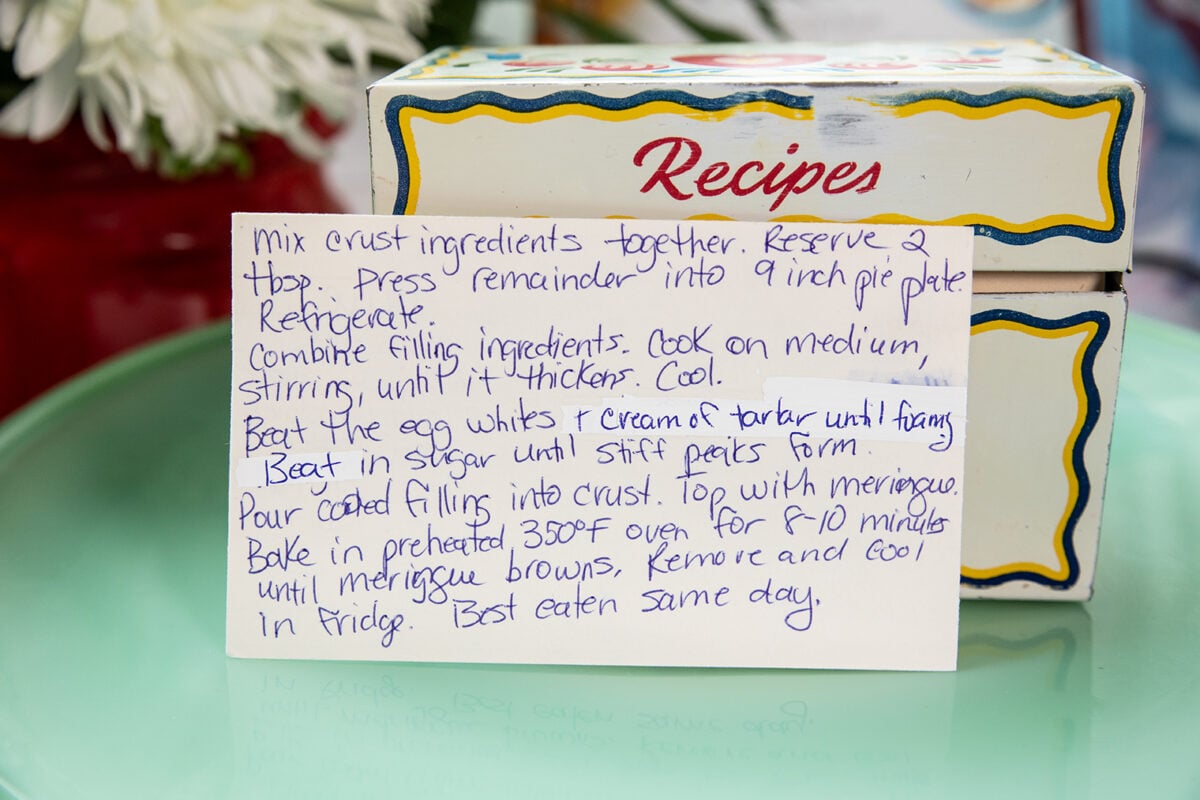 Recipes
Mix crust ingredients together. Reserve 2
tbsp. Press remainder into 9 inch pie plate.
Refrigerate.
Combine filling ingredients. Cook on medium,
stirring, until it thickens. Cool.
Beat the egg whites + cream of tartar until foamy
Beat in sugar until stiff peaks form.
Pour cooled filling into crust. Top with meringue.
Bake in preheated 350°F oven for 8-10 minutes
until meringue browns. Remove and cool
in fridge. Best eaten same day.